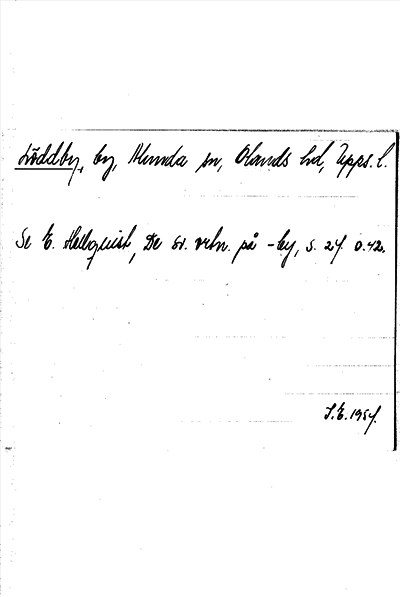 Löddby, by, Alunda sn, Olands hd, Upps. l.
Se E. Hellquist, De sv. ortn. på -by, s. 27 o. 42.
S.E. 1957.